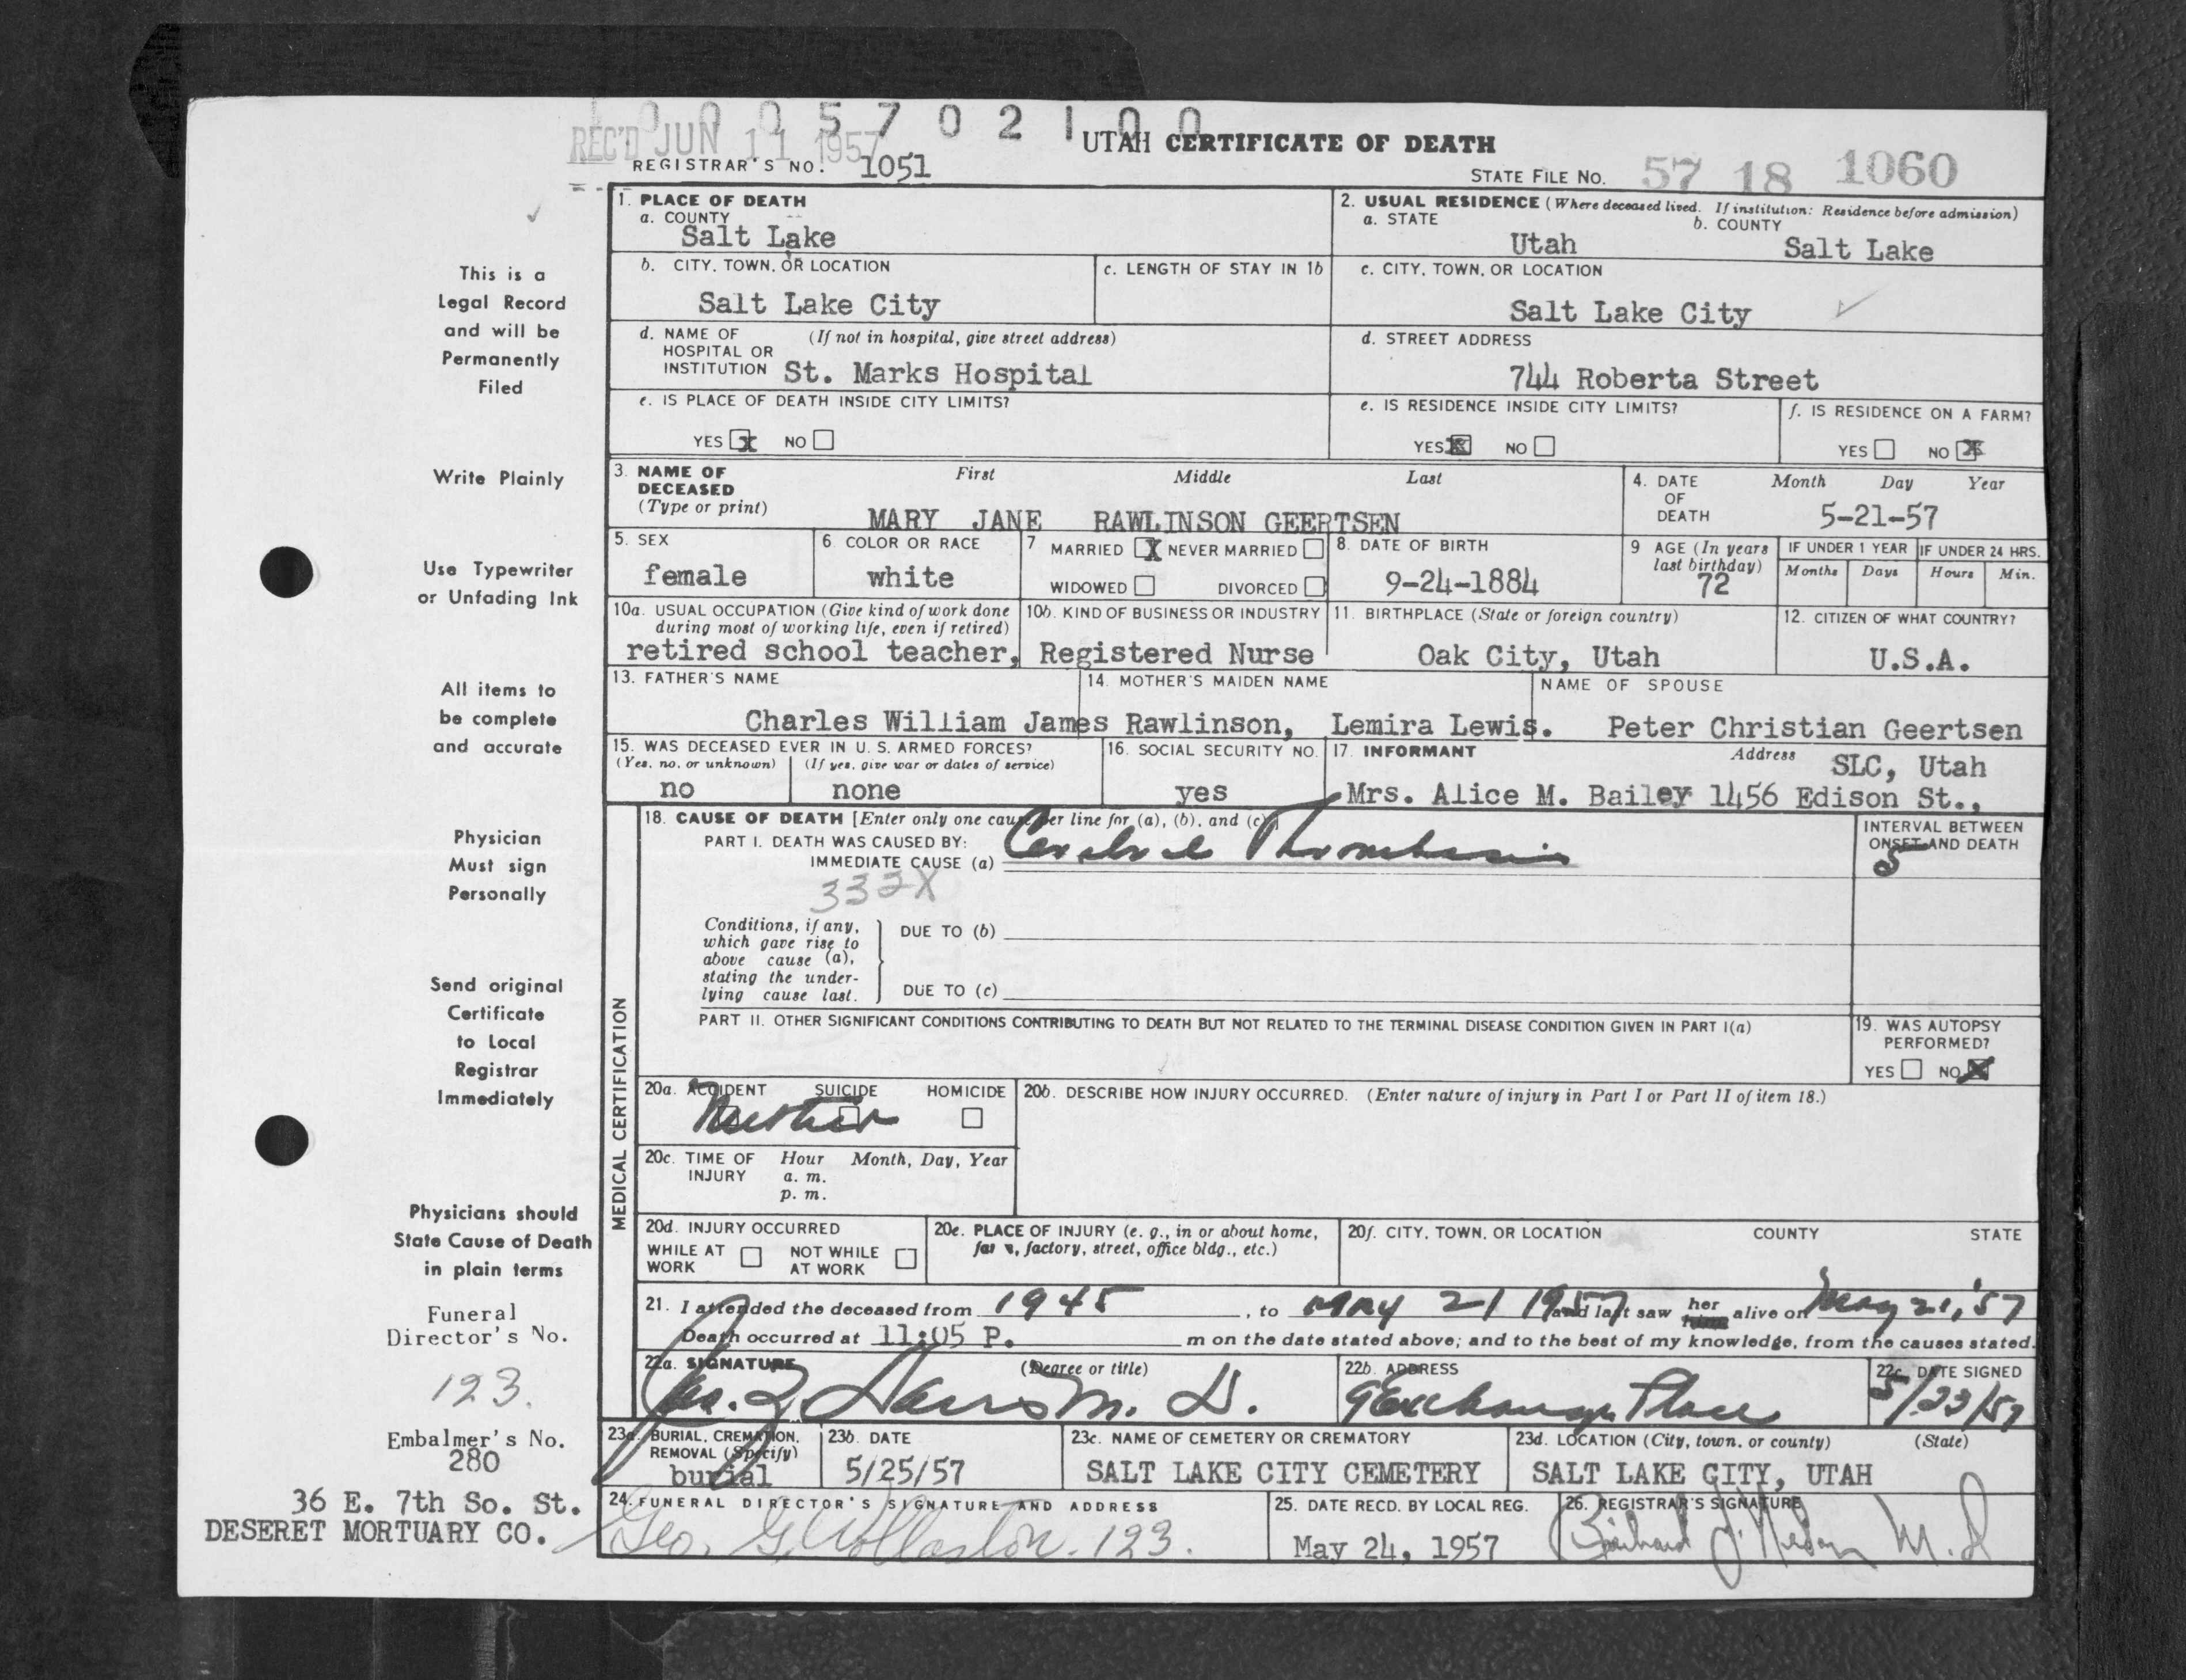 1 0 0 0 5 7 0 2 1 0 0
REC'D JUN 11 1957
UTAH CERTIFICATE OF DEATH
REGISTRAR'S NO. 1051
STATE FILE NO. 57 18 1060
1. PLACE OF DEATH
a. COUNTY
Salt Lake
2. USUAL RESIDENCE (Where deceased lived. If institution: Residence before admission)
a. STATE b. COUNTY
Utah Salt Lake
b. CITY, TOWN, OR LOCATION
Salt Lake City
c. LENGTH OF STAY IN 1b
c. CITY, TOWN, OR LOCATION
Salt Lake City
d. NAME OF (If not in hospital, give street address)
HOSPITAL OR
INSTITUTION St. Marks Hospital
d. STREET ADDRESS
744 Roberta Street
e. IS PLACE OF DEATH INSIDE CITY LIMITS?
YES X NO
e. IS RESIDENCE INSIDE CITY LIMITS?
YES X NO
f. IS RESIDENCE ON A FARM?
YES NO X
3. NAME OF First Middle Last
DECEASED
(Type or print)
MARY JANE RAWLINSON GEERTSEN
4. DATE Month Day Year
OF
DEATH 5-21-57
5. SEX
female
6. COLOR OR RACE
white
7 MARRIED X NEVER MARRIED
WIDOWED DIVORCED
8. DATE OF BIRTH
9-24-1884
9 AGE (In years
last birthday)
72
IF UNDER 1 YEAR IF UNDER 24 HRS.
Months Days Hours Min.
10a. USUAL OCCUPATION (Give kind of work done
during most of working life, even if retired)
retired school teacher,
10b. KIND OF BUSINESS OR INDUSTRY
Registered Nurse
11. BIRTHPLACE (State or foreign country)
Oak City, Utah
12. CITIZEN OF WHAT COUNTRY?
U.S.A.
13. FATHER'S NAME 14. MOTHER'S MAIDEN NAME NAME OF SPOUSE
Charles William James Rawlinson, Lemira Lewis. Peter Christian Geertsen
15. WAS DECEASED EVER IN U. S. ARMED FORCES?
(Yes, no, or unknown) (If yes, give war or dates of service)
no none
16. SOCIAL SECURITY NO.
yes
17. INFORMANT Address
SLC, Utah
Mrs. Alice M. Bailey 1456 Edison St.,
MEDICAL CERTIFICATION
18. CAUSE OF DEATH [Enter only one cause per line for (a), (b), and (c)]
PART I. DEATH WAS CAUSED BY:
IMMEDIATE CAUSE (a) Cerebral Thrombosis
332X
INTERVAL BETWEEN
ONSET AND DEATH
5
Conditions, if any,
which gave rise to
above cause (a),
stating the under-
lying cause last.
DUE TO (b)
DUE TO (c)
PART II. OTHER SIGNIFICANT CONDITIONS CONTRIBUTING TO DEATH BUT NOT RELATED TO THE TERMINAL DISEASE CONDITION GIVEN IN PART I(a)
19. WAS AUTOPSY
PERFORMED?
YES NO X
20a. ACCIDENT SUICIDE HOMICIDE
Neither
20b. DESCRIBE HOW INJURY OCCURRED. (Enter nature of injury in Part I or Part II of item 18.)
20c. TIME OF Hour Month, Day, Year
INJURY a. m.
p. m.
20d. INJURY OCCURRED
WHILE AT NOT WHILE
WORK AT WORK
20e. PLACE OF INJURY (e. g., in or about home,
farm, factory, street, office bldg., etc.)
20f. CITY, TOWN, OR LOCATION COUNTY STATE
21. I attended the deceased from 1945, to May 21 1957 and last saw her him alive on May 21, '57
Death occurred at 11:05 P. m on the date stated above; and to the best of my knowledge, from the causes stated.
22a. SIGNATURE (Degree or title)
M. D.
22b. ADDRESS
9 Exchange Place
22c. DATE SIGNED
5/23/57
23a. BURIAL, CREMATION,
REMOVAL (Specify)
burial
23b. DATE
5/25/57
23c. NAME OF CEMETERY OR CREMATORY
SALT LAKE CITY CEMETERY
23d. LOCATION (City, town, or county) (State)
SALT LAKE CITY, UTAH
24. FUNERAL DIRECTOR'S SIGNATURE AND ADDRESS
Geo. G. Wollaston. 123.
25. DATE RECD. BY LOCAL REG.
May 24, 1957
26. REGISTRAR'S SIGNATURE
M. D
This is a
Legal Record
and will be
Permanently
Filed
Write Plainly
Use Typewriter
or Unfading Ink
All items to
be complete
and accurate
Physician
Must sign
Personally
Send original
Certificate
to Local
Registrar
Immediately
Physicians should
State Cause of Death
in plain terms
Funeral
Director's No.
123.
Embalmer's No.
280
36 E. 7th So. St.
DESERET MORTUARY CO.